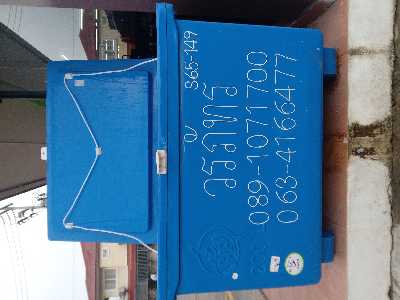 S65-149
วรภัทร
089-1071700
063-4166477
200